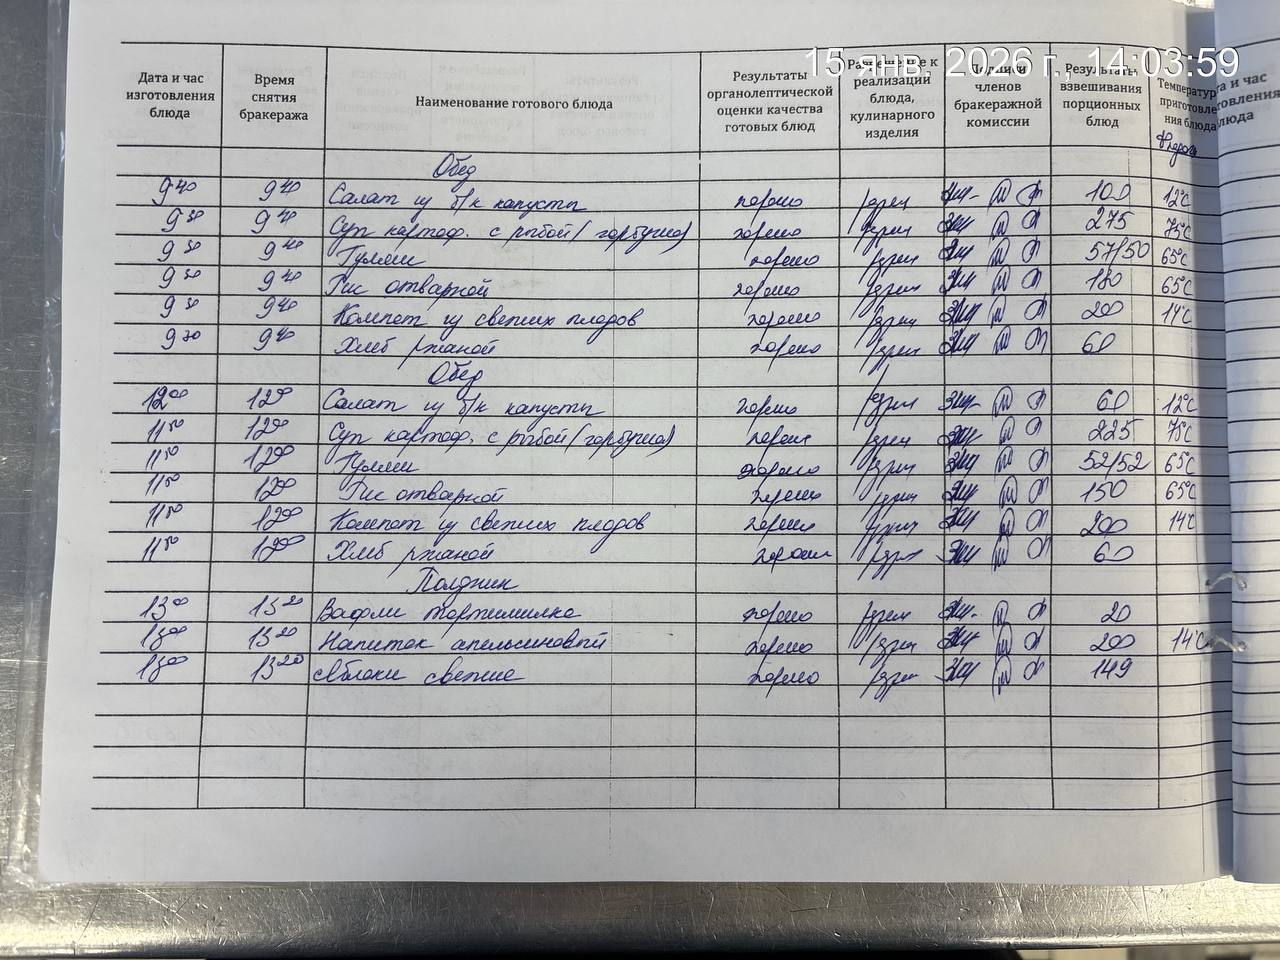 15 янв. 2026 г., 14:03:59
Дата и час изготовления блюда | Время снятия бракеража | Наименование готового блюда | Результаты органолептической оценки качества готовых блюд | Разрешение к реализации блюда, кулинарного изделия | Подписи членов бракеражной комиссии | Результаты взвешивания порционных блюд | Температура приготовления блюда
Обед
9 40 9 40 Салат из б/к капусты хорошо разреш 100 12°С
9 30 9 40 Суп картоф. с рыбой (горбуша) хорошо разреш 275 75°С
9 30 9 40 Гуляш хорошо разреш 57/50 65°С
9 30 9 40 Рис отварной хорошо разреш 180 65°С
9 30 9 40 Компот из свежих плодов хорошо разреш 200 14°С
9 30 9 40 Хлеб ржаной хорошо разреш 60
Обед
12 00 12 00 Салат из б/к капусты хорошо разреш 60 12°С
11 50 12 00 Суп картоф. с рыбой (горбуша) хорошо разреш 225 75°С
11 50 12 00 Гуляш хорошо разреш 52/52 65°С
11 50 12 00 Рис отварной хорошо разреш 150 65°С
11 50 12 00 Компот из свежих плодов хорошо разреш 200 14°С
11 50 12 00 Хлеб ржаной хорошо разреш 60
Полдник
13 00 13 20 Вафли хорошо разреш 20
13 00 13 20 Напиток апельсиновый хорошо разреш 200 14°С
13 00 13 20 Яблоки свежие хорошо разреш 149